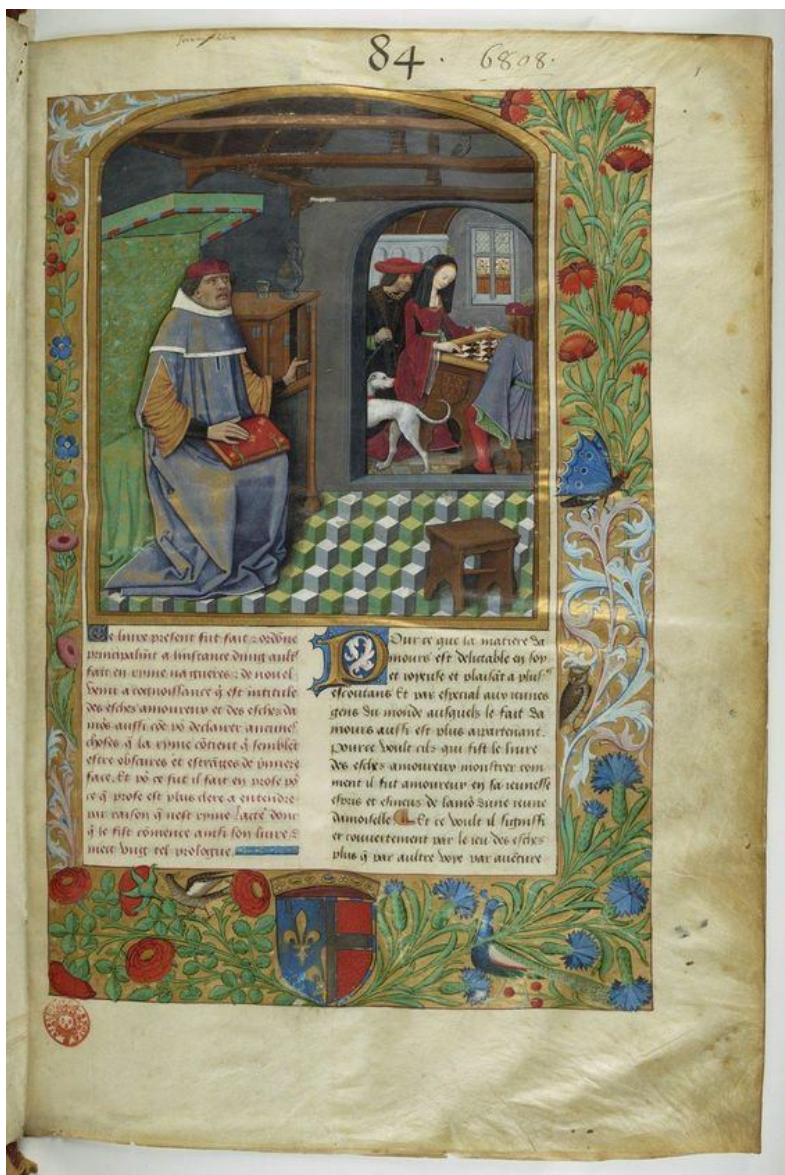 84. 6808.
1
Ce livre present fut fait & ordōne
principalmt a linstance dung aultre
fait en ryme nagueres & de nouvel
venu a cognoissance q̄ est intitule
des esches amoureux et des esches da
mōs aussi cōe pō declairer aucunes
choses q̄ la ryme cōtient q̄ semblēt
estre obscures et estrāges de pmiere
face. Et pō ce fut il fait en prose pō
ce q̄ prose est plus clere a entendre
par raison q̄ nest ryme Lacte donc
q̄ le fist cōmence ainsi son livre &
mect ung tel prologue.
Pour ce que la matiere da
mours est delictable en soy
et joyeuse et plaisāt a plusrs
escoutans Et par especial aux jeunes
gens du monde ausquels le fait da
mours aussi est plus appartenant.
Pource voult cils qui fist le livre
des esches amoureux monstrer com
ment il fut amoureux en sa jeunesse
espris et esmeus de lamōr dune jeune
damoiselle Et ce voult il signifir
et couvertement par le jeu des esches
plus q̄ par aultre voye par aventure